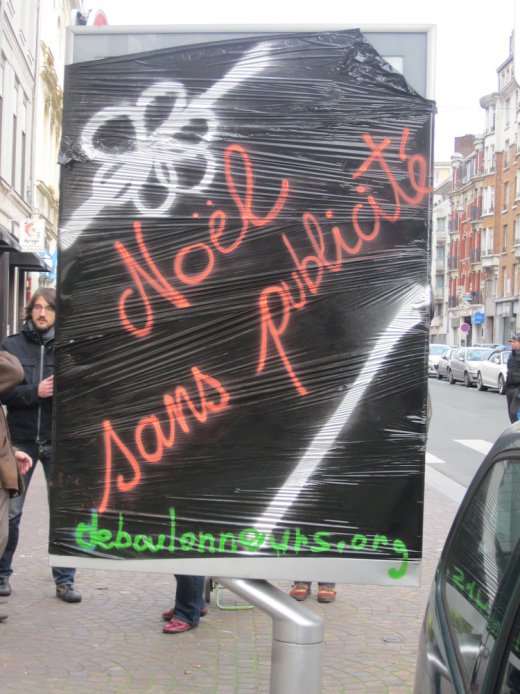 Noël
sans publicité
deboulonneurs.org